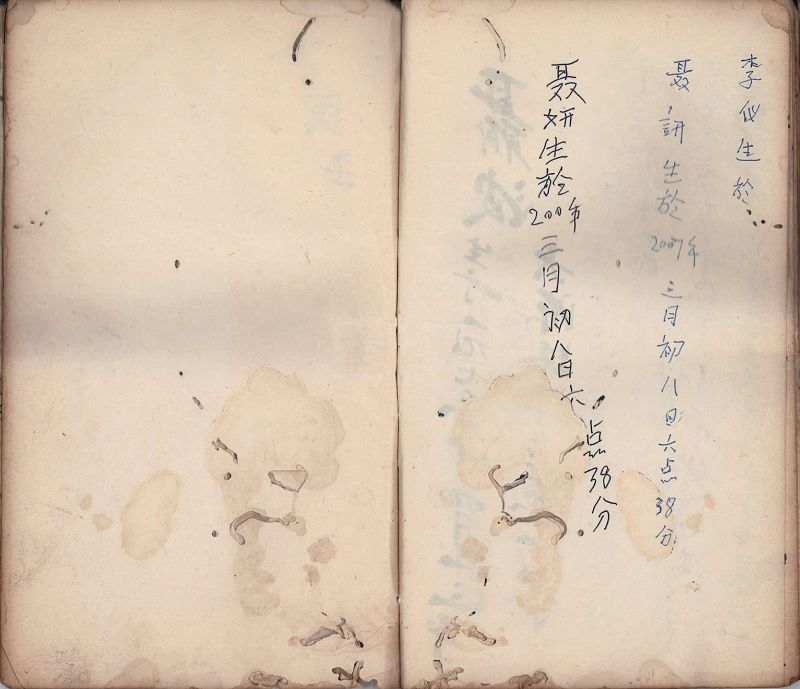 李仪生於
聂訮生於2007年三月初八日六点38分
聂妍生於200年三月初八日六点38分